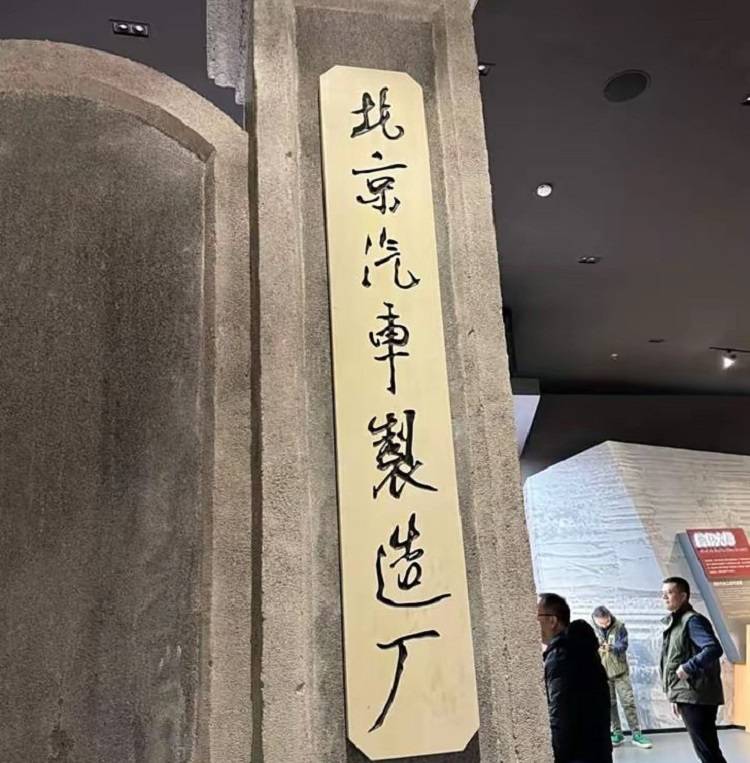 北京汽車製造厂